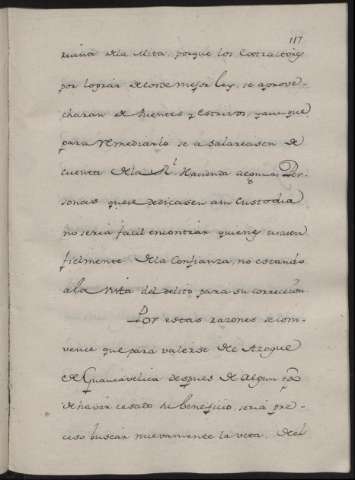 117
raria de la Mita, porque los Extractores
por lograr de lo de mejor Ley, se aprove-
charan de Puentes y estrivos, y aunque
para remediarlo se asalareasen de
cuenta de la Rl. Hacienda algunas Per-
sonas que se dedicasen a su Custodia
no seria facil encontrar quienes usasen
fielmente de la Confianza, no estando
a la vista del delito para su correccion
Por estas razones se con-
vence que para valerse de Azogue
de Guancavelica despues de algun tpo
de haver cesado su beneficio, sera pre-
ciso buscar nuevamente la veta. Del